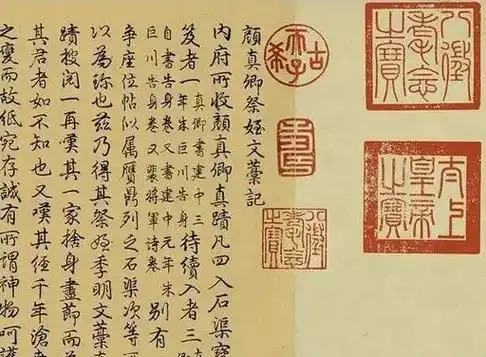 八徵耄念之寶
太上皇帝之寶
古稀天子
壽
八徵耄念之寶
顏真卿祭姪文藁記
內府所收顏真卿真蹟凡四入石渠寶
笈者一真卿書建中三年朱巨川告身待續入者三
自書告身卷又書建中元年朱巨川告身卷又裴將軍詩卷別有
爭座位帖似属贋鼎列之石渠次等可
以為珎也茲乃得其祭姪季明文藁
蹟披閱一再嘆其一家捨身盡節而
其君者如不知也又嘆其經千年滄
之變而故紙宛存誠有所謂神物呵護